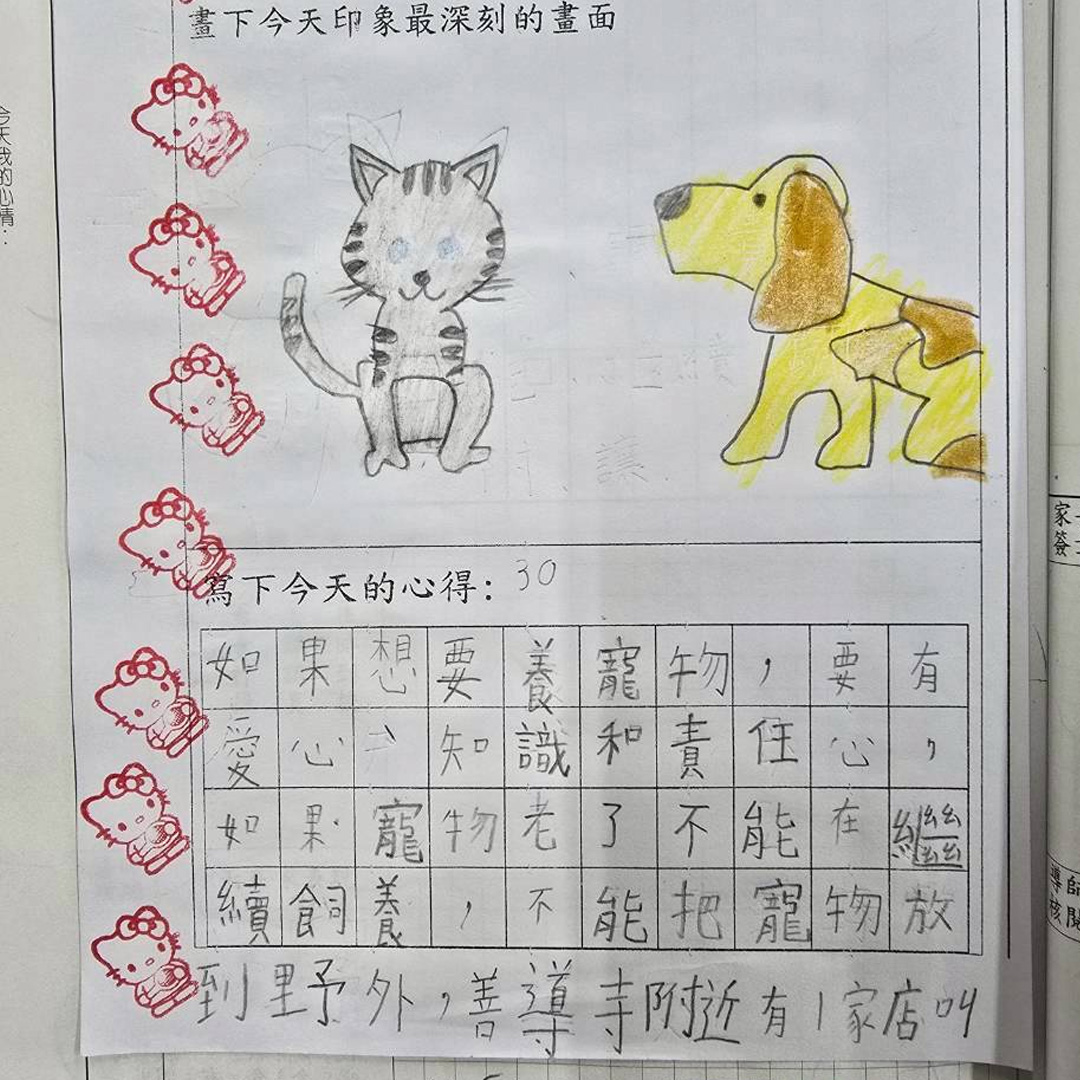 畫下今天印象最深刻的畫面
今天我的心情：
寫下今天的心得：30
如果想要養寵物，要有
愛心、知識和責任心，
如果寵物老了不能在繼
續飼養，不能把寵物放
到野外，善導寺附近有1家店叫
家
簽
導師
核閱